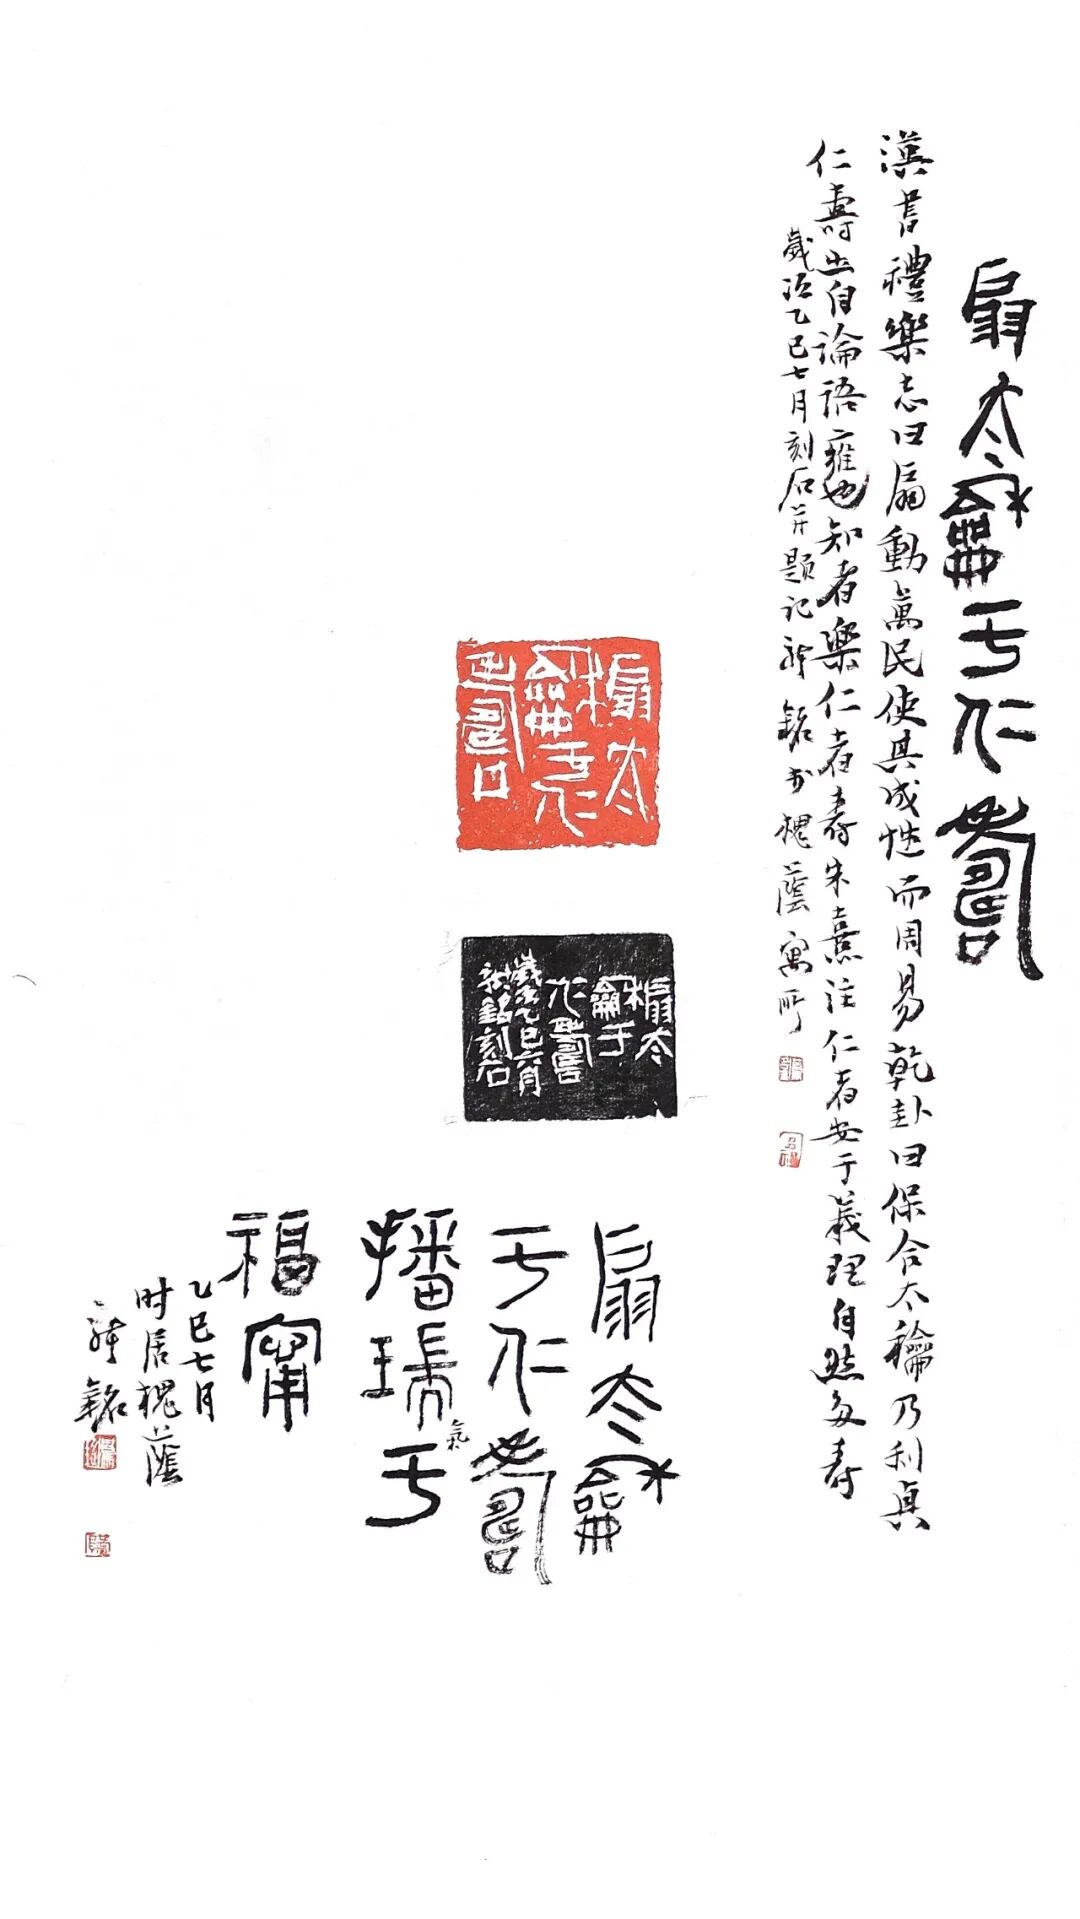 扇太龢于仁壽
漢書禮樂志曰扇動萬民使其成性而周易乾卦曰保合太龢乃利貞
仁壽出自論語雍也知者樂仁者壽朱熹注仁者安于義理自然多壽
歲次乙巳七月刻石并題記銘於槐蔭寓所
扇太
龢于仁
壽
扇太
龢于
仁壽
歲次乙巳六月
銘刻石
扇太龢
于仁壽
播瑞氣于
福甯
乙巳七月
时居槐蔭
銘